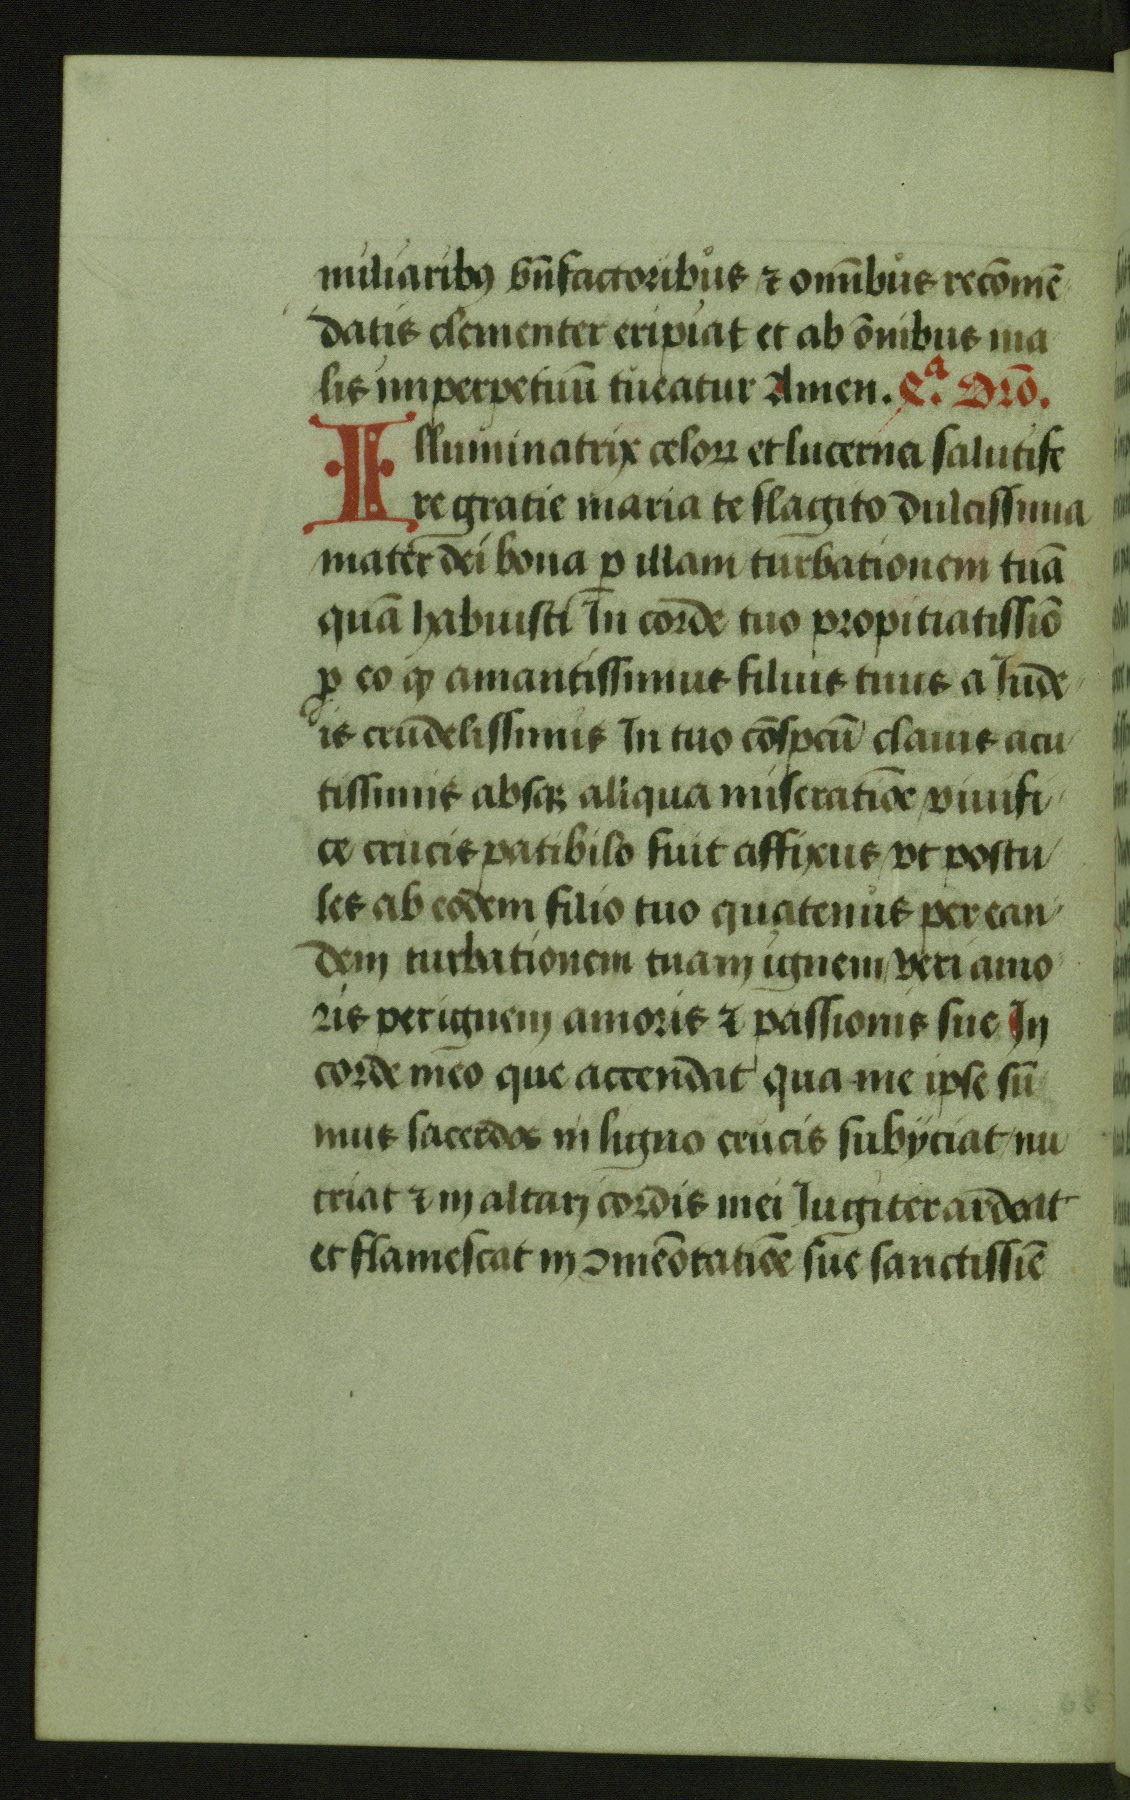 miliaribꝰ bn̄factoribus ⁊ omībus recōmē
datis clementer eripiat et ab ōnibus ma
lis imperpetuū tueatur Amen. Cᵃ. Orō.
Illuminatrix celoꝝ et lucerna salutife
re gratie maria te flagito dulcissima
mater dei bona ꝑ illam turbationem tuā
quā habuisti In corde tuo propitiatissīo
ꝓ eo ꝙ amantissimus filius tuus a Jude
is crudelissimis In tuo cōspcū clauis acu
tissimis absqꝫ aliqua miseratiōe viuifi
ce crucis patibilo fuit affixus vt postu
les ab eodem filio tuo quatenus per ean
dem turbationem tuam ignem veri amo
ris per ignem amoris ⁊ passionis sue In
corde meo que accendat qua me ipse sū
mus sacerdos in ligno crucis subijciat nu
triat ⁊ in altari cordis mei Jugiter ardeat
et flamescat in ꝯmēōratiōe sue sanctissīe